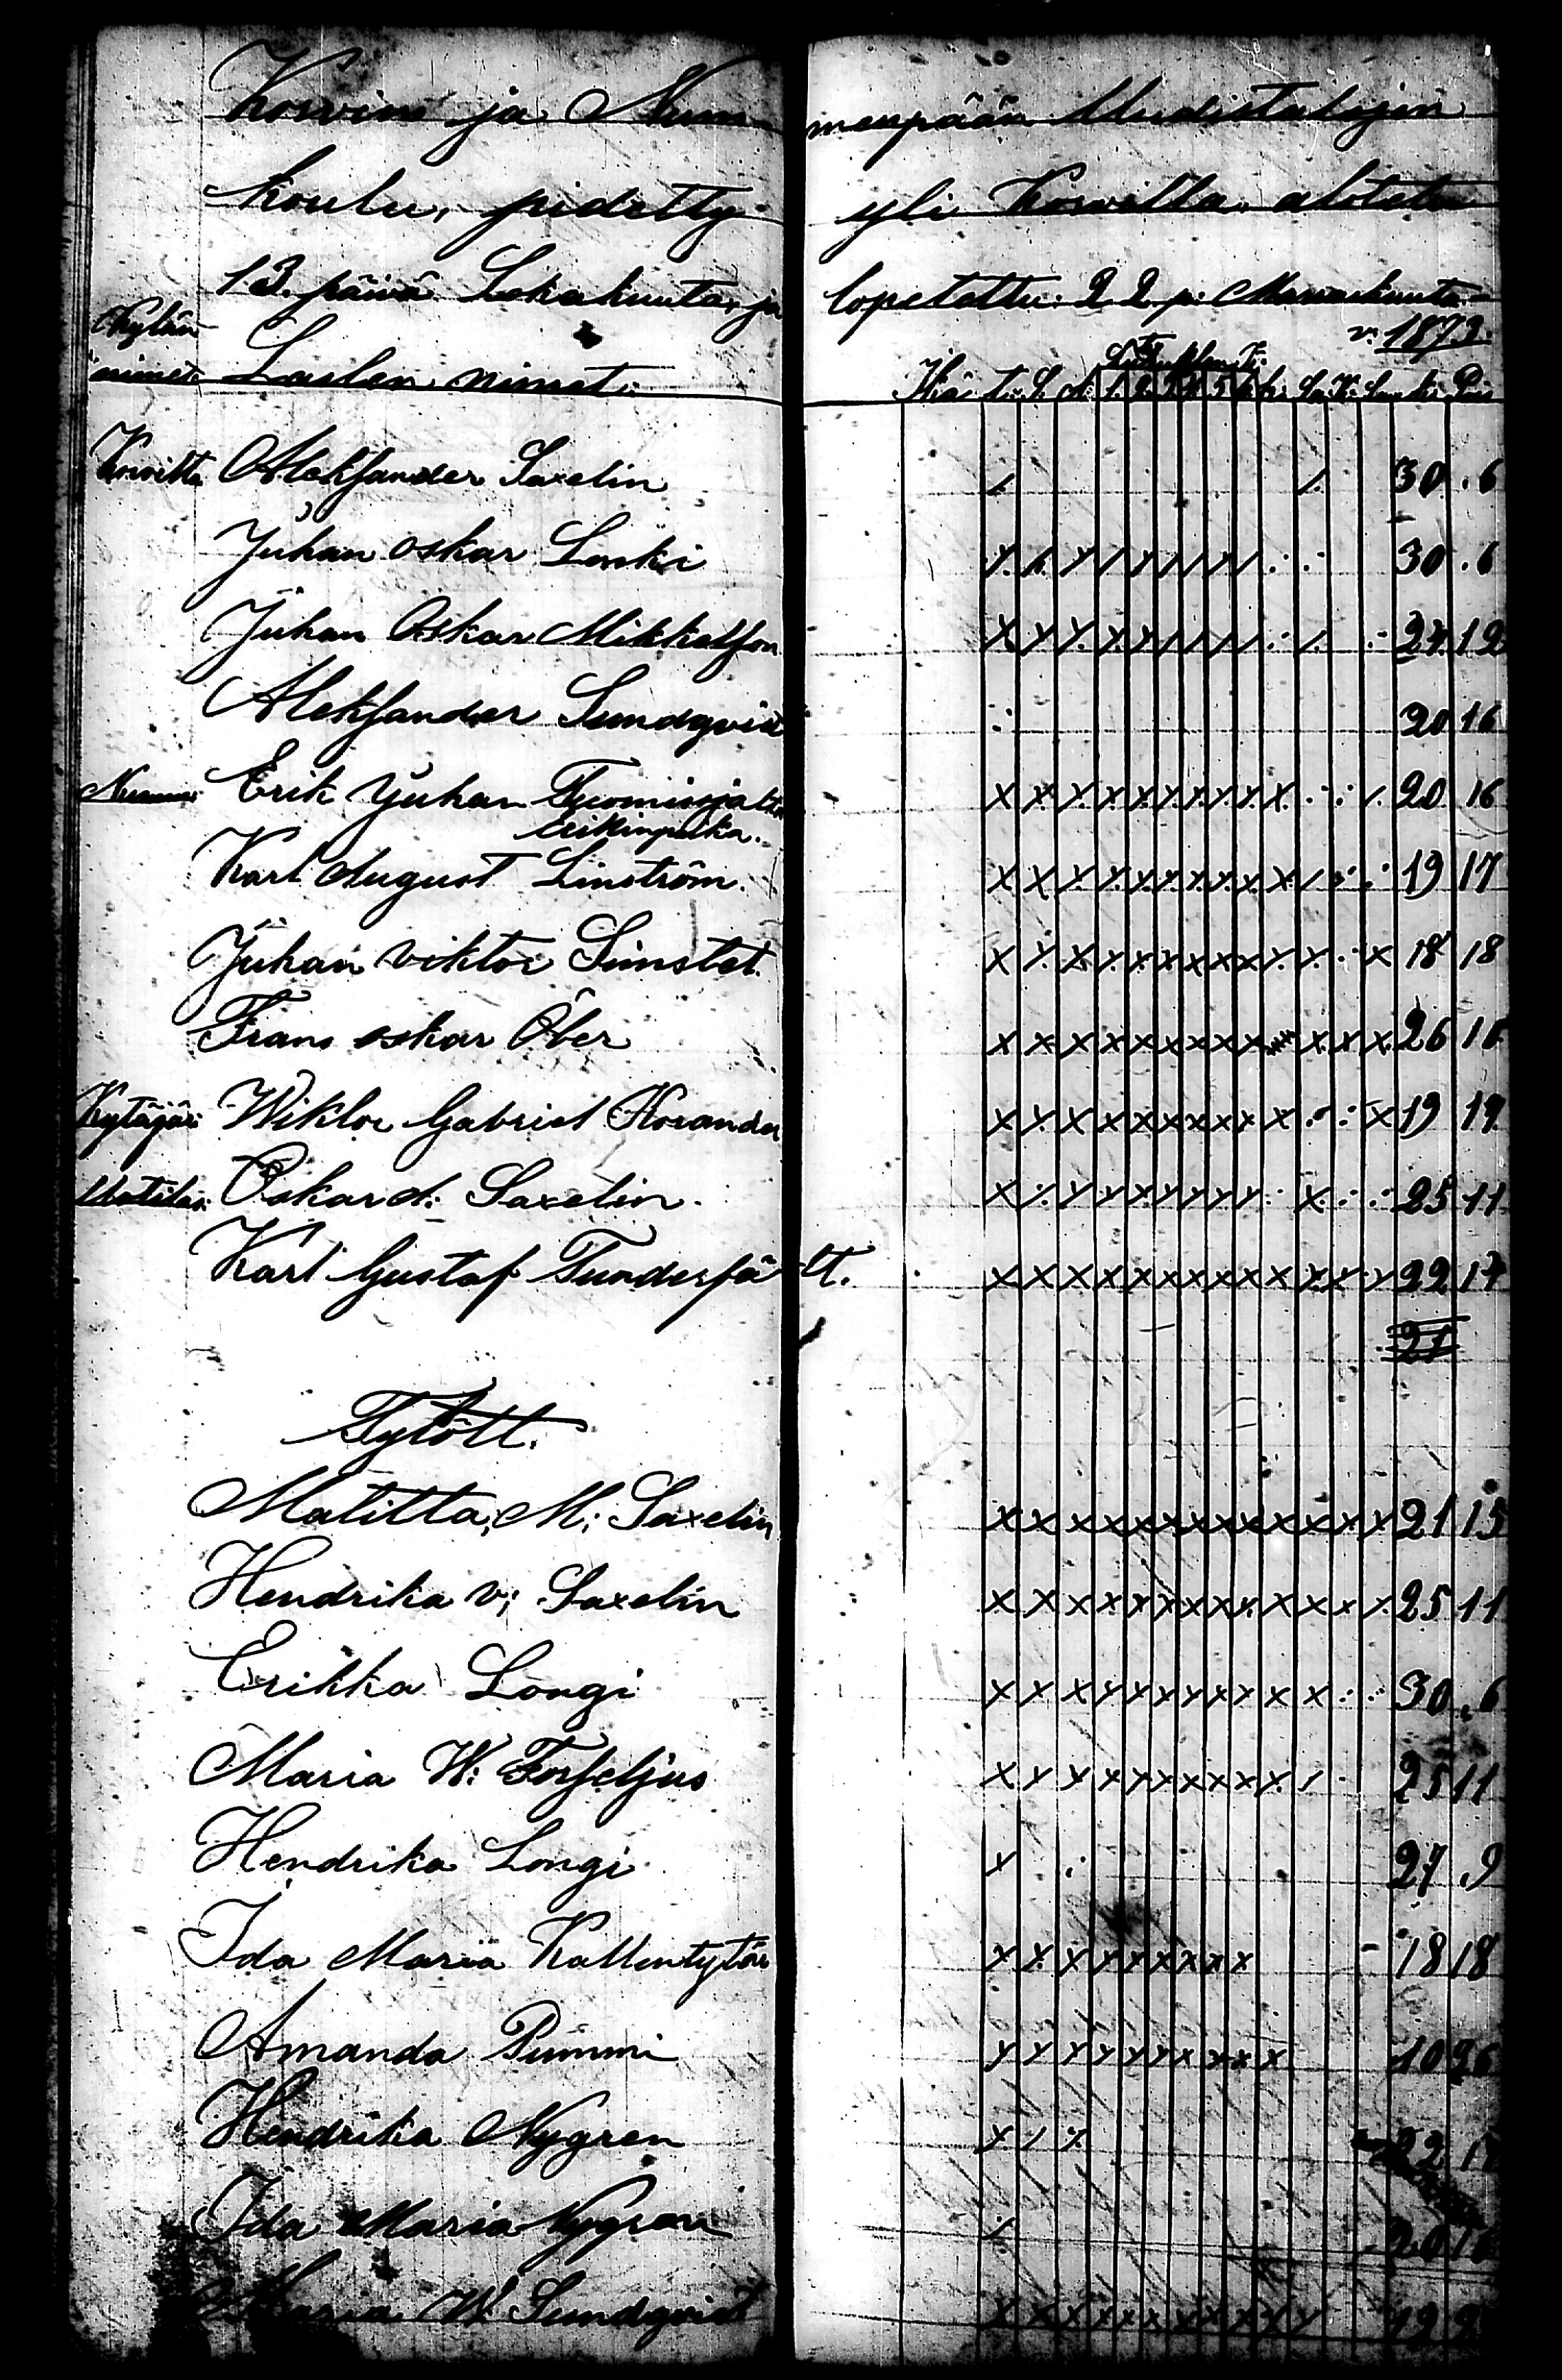 Korvin ja Nummenpään Uudistalojen
koulu, pidetty yli Korvilla, alotettu
13. päivä Lokakuuta, ja lopetettu: 22. p: Marraskuuta
v: 1873.
Kylän nimet. Lasten nimet:
Korvilta Aleksander Saxelin 30 6
Juhan oskar Lonki 30 6
Juhan Oskar Mikkelson 24 12
Aleksander Sundqvist 20 16
Erik Juhan 20 16
Erikinpoika.
Karl August Linström. 19 17
Juhan viktor Limstet. 18 18
Frans oskar Öber 26 10
Kytäjä: Wiktor Gabriel Korander 19 19
Oskar d: Saxelin. 25 11
Karl Gustaf Tunderfält. 22 14
21
Tytött.
Matilta, M: Saxelin 21 15
Hendrika v; Saxelin 25 11
Erikka Longi 30 6
Maria W: Forseljus 25 11
Hendrika Longi 27 9
Ida Maria Kallentytär 18 18
Amanda Pummi 10 26
Hendrika Nygren 22 14
Ida Maria Nygren 20 16
Maria W. Sundqvist